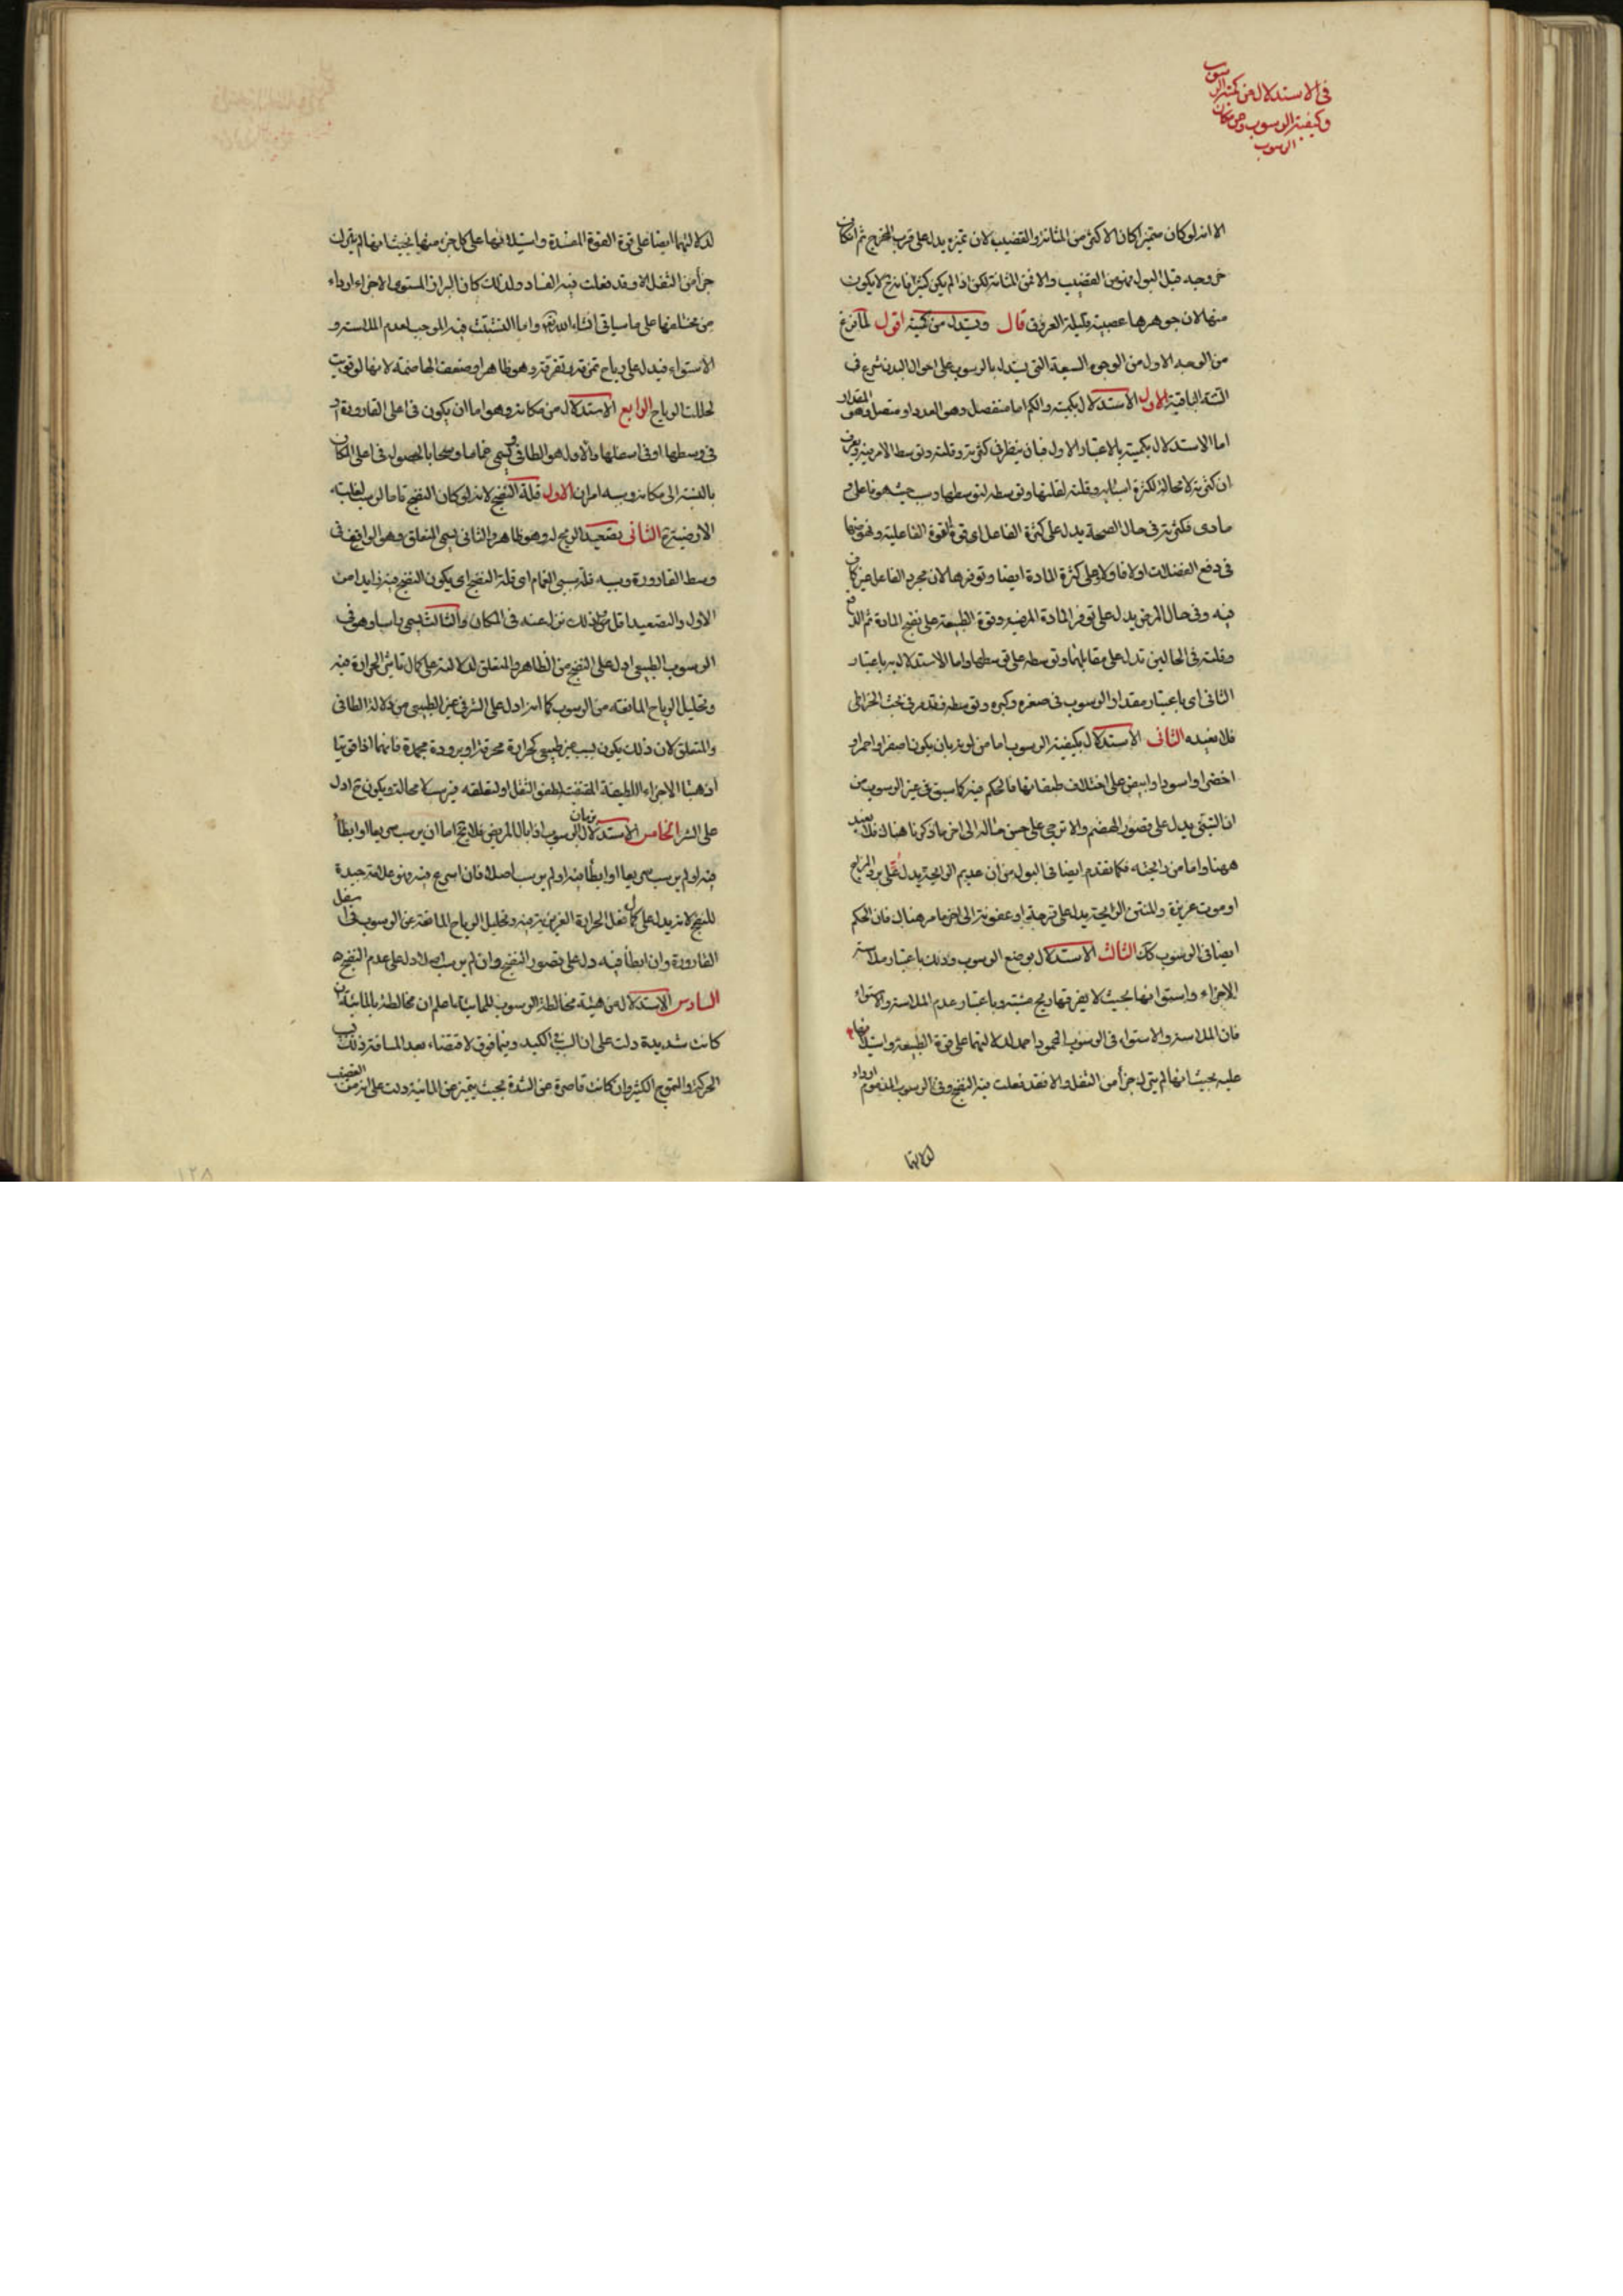 في الاستدلال من كمية الرسوب
وكيفية الرسوب ومن مكان
الرسوب
الا انه لو كان متميزا كان الاكثر من المثانة والقضيب لان تميزه يدل على قرب المخرج ثم ان كان
خروجه قبل البول فهو من القضيب والا فمن المثانة لكن اذا لم يكن كثيرا فانه ح لا يكون
منها لان جوهرها عصبية قليلة العروق قال ويستدل من كميته اقول لما فرغ
من الوجه الاول من الوجوه السبعة التي يستدل بالرسوب على احوال البدن شرع في
الستة الباقية الاول الاستدلال بكميته والكم اما منفصل وهو العدد او متصل وهو المقدار
اما الاستدلال بكميته بالاعتبار الاول فبان ينظر في كثرته وقلته وتوسط الامر فيه
ان كثرته لا محالة لكثرة اسبابه وقلته لقلتها وتوسطه لتوسطها وسببه هو فاعلي و
مادي فكثرته في حال الصحة يدل على كثرة الفاعل اي قوة القوة الفاعلية
في دفع الفضلات اولا فاولا وعلى كثرة المادة ايضا وتوفرها لان مجرد الفاعل غير كاف
فيه وفي حال المرض يدل على توفر المادة المرضية وقوة الطبيعة على نضج المادة ثم الدفع
وقلته في الحالين تدل على مقابلتهما وتوسطه على توسطهما واما الاستدلال به باعتبار
الثاني اي باعتبار مقدار الرسوب في صغره وكبره وتوسطه فقد مر في بحث الخراطي
فلا نعيده الثاني الاستدلال بكيفية الرسوب اما من لونه بان يكون اصفر او احمر او
اخضر او اسود او ابيض على اختلاف طبقاتها فالحكم فيه كما سبق في غير الرسوب من
ان التبني يدل على قصور الهضم والاترجي على حسن حاله الى اخر ما ذكرنا هناك فلا نعيد
ههنا واما من رائحته فكما تقدم ايضا في البول من ان عديم الرائحة يدل على برد المزاج
او موت غريزة والمنتن الرائحة يدل على قرحة او عفونة الى اخر ما مر هناك فان الحكم
ايضا في الرسوب كك الثالث الاستدلال بوضع الرسوب وذلك باعتبار ملاسته
الاجزاء واستوائها بحيث لا يفرقها ريح مشتتة وباعتبار عدم الملاسة والاستواء
فان الملاسة والاستواء في الرسوب المحمود احمد لدلالتهما على قوة الطبيعة واستيلائها
عليه بحيث انها لم يترك جزأ من الثفل والا فقد فعلت فيه النضج وفي الرسوب المذموم ارداء
لدلالتهما
لدلالتهما ايضا على قوة القوة المفسدة واستيلائها على كل جزء منها بحيث انها لم يترك
جزأ من الثفل الا وقد فعلت فيه الفساد ولذلك كان البراز المستوي الاجزاء ارداء
من مختلفها على ما سياتي انشاء الله تعالى واما التشتت فيه الموجب لعدم الملاسة و
الاستواء فيدل على رياح تمزقه وتفرقه وهو ظاهر او ضعف الهاضمة لانها لو قويت
لحللت الرياح الرابع الاستدلال من مكانه وهو اما ان يكون في اعلى القارورة او
في وسطها او في اسفلها والاول هو الطافي ويسمى غماما وسحابا لحصوله في اعلى المكان
بالنسبة الى مكانه وسببه امران الاول قلة النضج لانه لو كان النضج تاما لرسب لغلبة
الارضية الثاني تصعيد الريح له وهو ظاهر والثاني يسمى المتعلق وهو الواقع في
وسط القارورة وسببه قلة سببي الغمام اي قلة النضج اي يكون النضج فيه زايدا من
الاول والتصعيد اقل من ذلك نزل عنه في المكان والثالث يسمى راسبا وهو في
الرسوب الطبيعي ادل على النضج من الظاهر والمتعلق لدلالته على كمال تاثير الحرارة فيه
وتحليل الرياح المانعة من الرسوب كما انه ادل على الشر في غير الطبيعي من دلالة الطافي
والمتعلق لان ذلك يكون بسبب غير طبيعي كحرارة محرقة او برودة مجمدة فانهما اذا قويتا
اذهبتا الاجزاء اللطيفة المقتضية لطفو الثفل او لتعلقه فيرسب لا محالة ويكون ح ادل
على الشر الخامس الاستدلال بزمان الرسوب اذا بال المريض فلا يخ اما ان يرسب سريعا او ابطأ
فيه او لم يرسب سريعا او ابطأ فيه او لم يرسب اصلا فان اسرع فيه فهو علامة جيدة
للنضج لانه يدل على كمال فعل الحرارة الغريزية فيه وتحليل الرياح المانعة عن الرسوب في اسفل
القارورة وان ابطأ فيه دل على قصور النضج وان لم يرسب اصلا دل على عدم النضج
السادس الاستدلال من هيئة مخالطة الرسوب للمائية اعلم ان مخالطته بالمائية ان
كانت شديدة دلت على ان الشئ الكبد وفيما فوق لاقتضاء بعد المسافة ذلك
الحركة والتموج الكثير وان كانت قاصرة عن الشدة بحيث يتميز عن المائية دلت على انه من القضيب
١٢٨